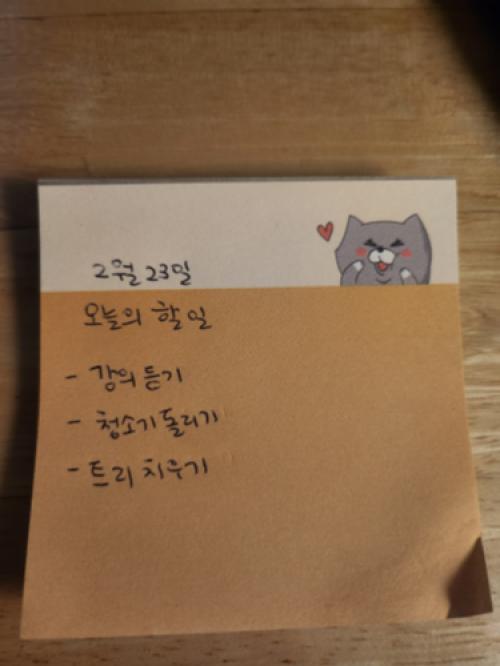 2월 23일
오늘의 할 일
- 강의 듣기
- 청소기 돌리기
- 트리 치우기